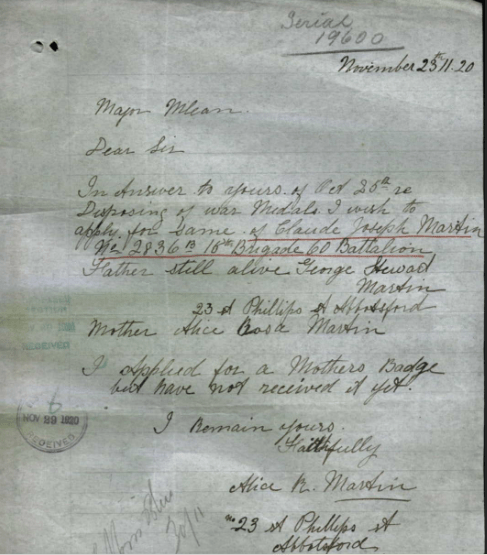 Serial
19600
November 25th 11.20
Major Mlean.
Dear Sir
In Answer to yours of Oct 25th re
Disposing of war Medals I wish to
apply for same of Claude Joseph Martin
No 2836 B 15th Brigade 60 Battalion
Father still alive George
Martin
23 St Phillips St Abbotsford
Mother Alice Rosa Martin
I Applied for a Mothers Badge
but have not received it yet.
I Remain yours.
Faithfully
Alice R. Martin
No 23 St Phillips St
Abbotsford
RECEIVED
NOV 1920
30/11